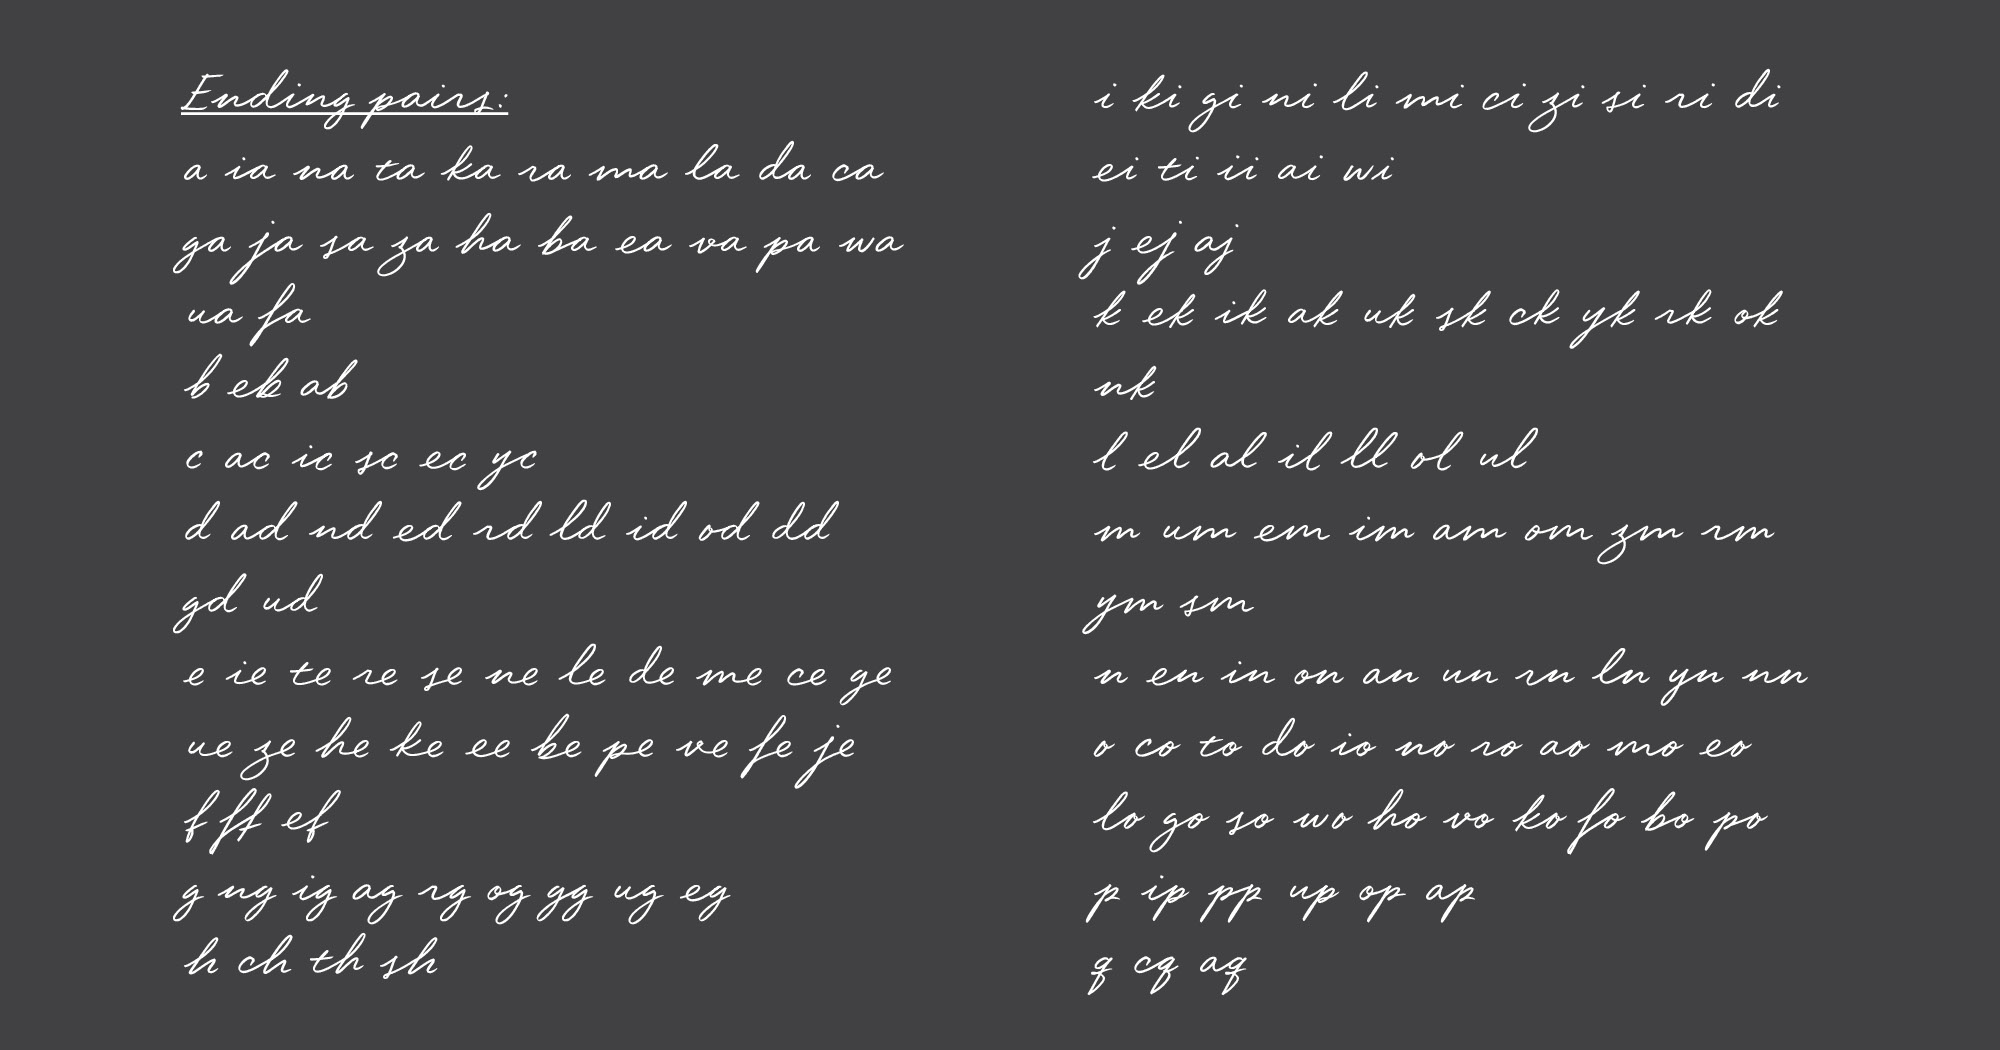 Ending pairs:
a ia na ta ka ra ma la da ca
ga ja sa za ha ba ea va pa wa
ua fa
b eb ab
c ac ic sc ec yc
d ad nd ed rd ld id od dd
gd ud
e ie te re se ne le de me ce ge
ue ze he ke ee be pe ve fe je
f ff ef
g ng ig ag rg og gg ug eg
h ch th sh
i ki gi ni li mi ci zi si ri di
ei ti ii ai wi
j ej aj
k ek ik ak uk sk ck yk rk ok
nk
l el al il ll ol ul
m um em im am om zm rm
ym sm
n en in on an un rn ln yn nn
o co to do io no ro ao mo eo
lo go so wo ho vo ko fo bo po
p ip pp up op ap
q cq aq